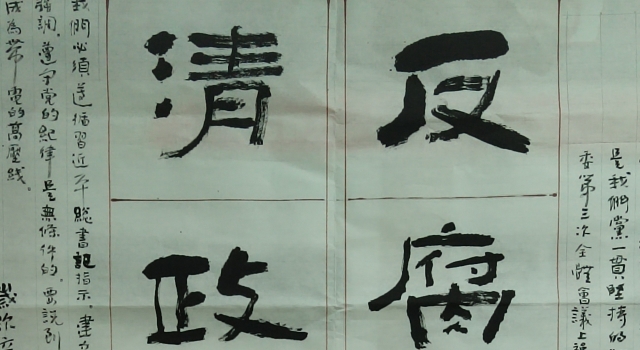 是我們黨一貫堅持的
委第三次全體會議上
反腐
清政
我們必須遵循習近平總書記指示,建立
強調,遵守党的紀律是無條件的,要說到
成為帶電的高壓线。
歲次